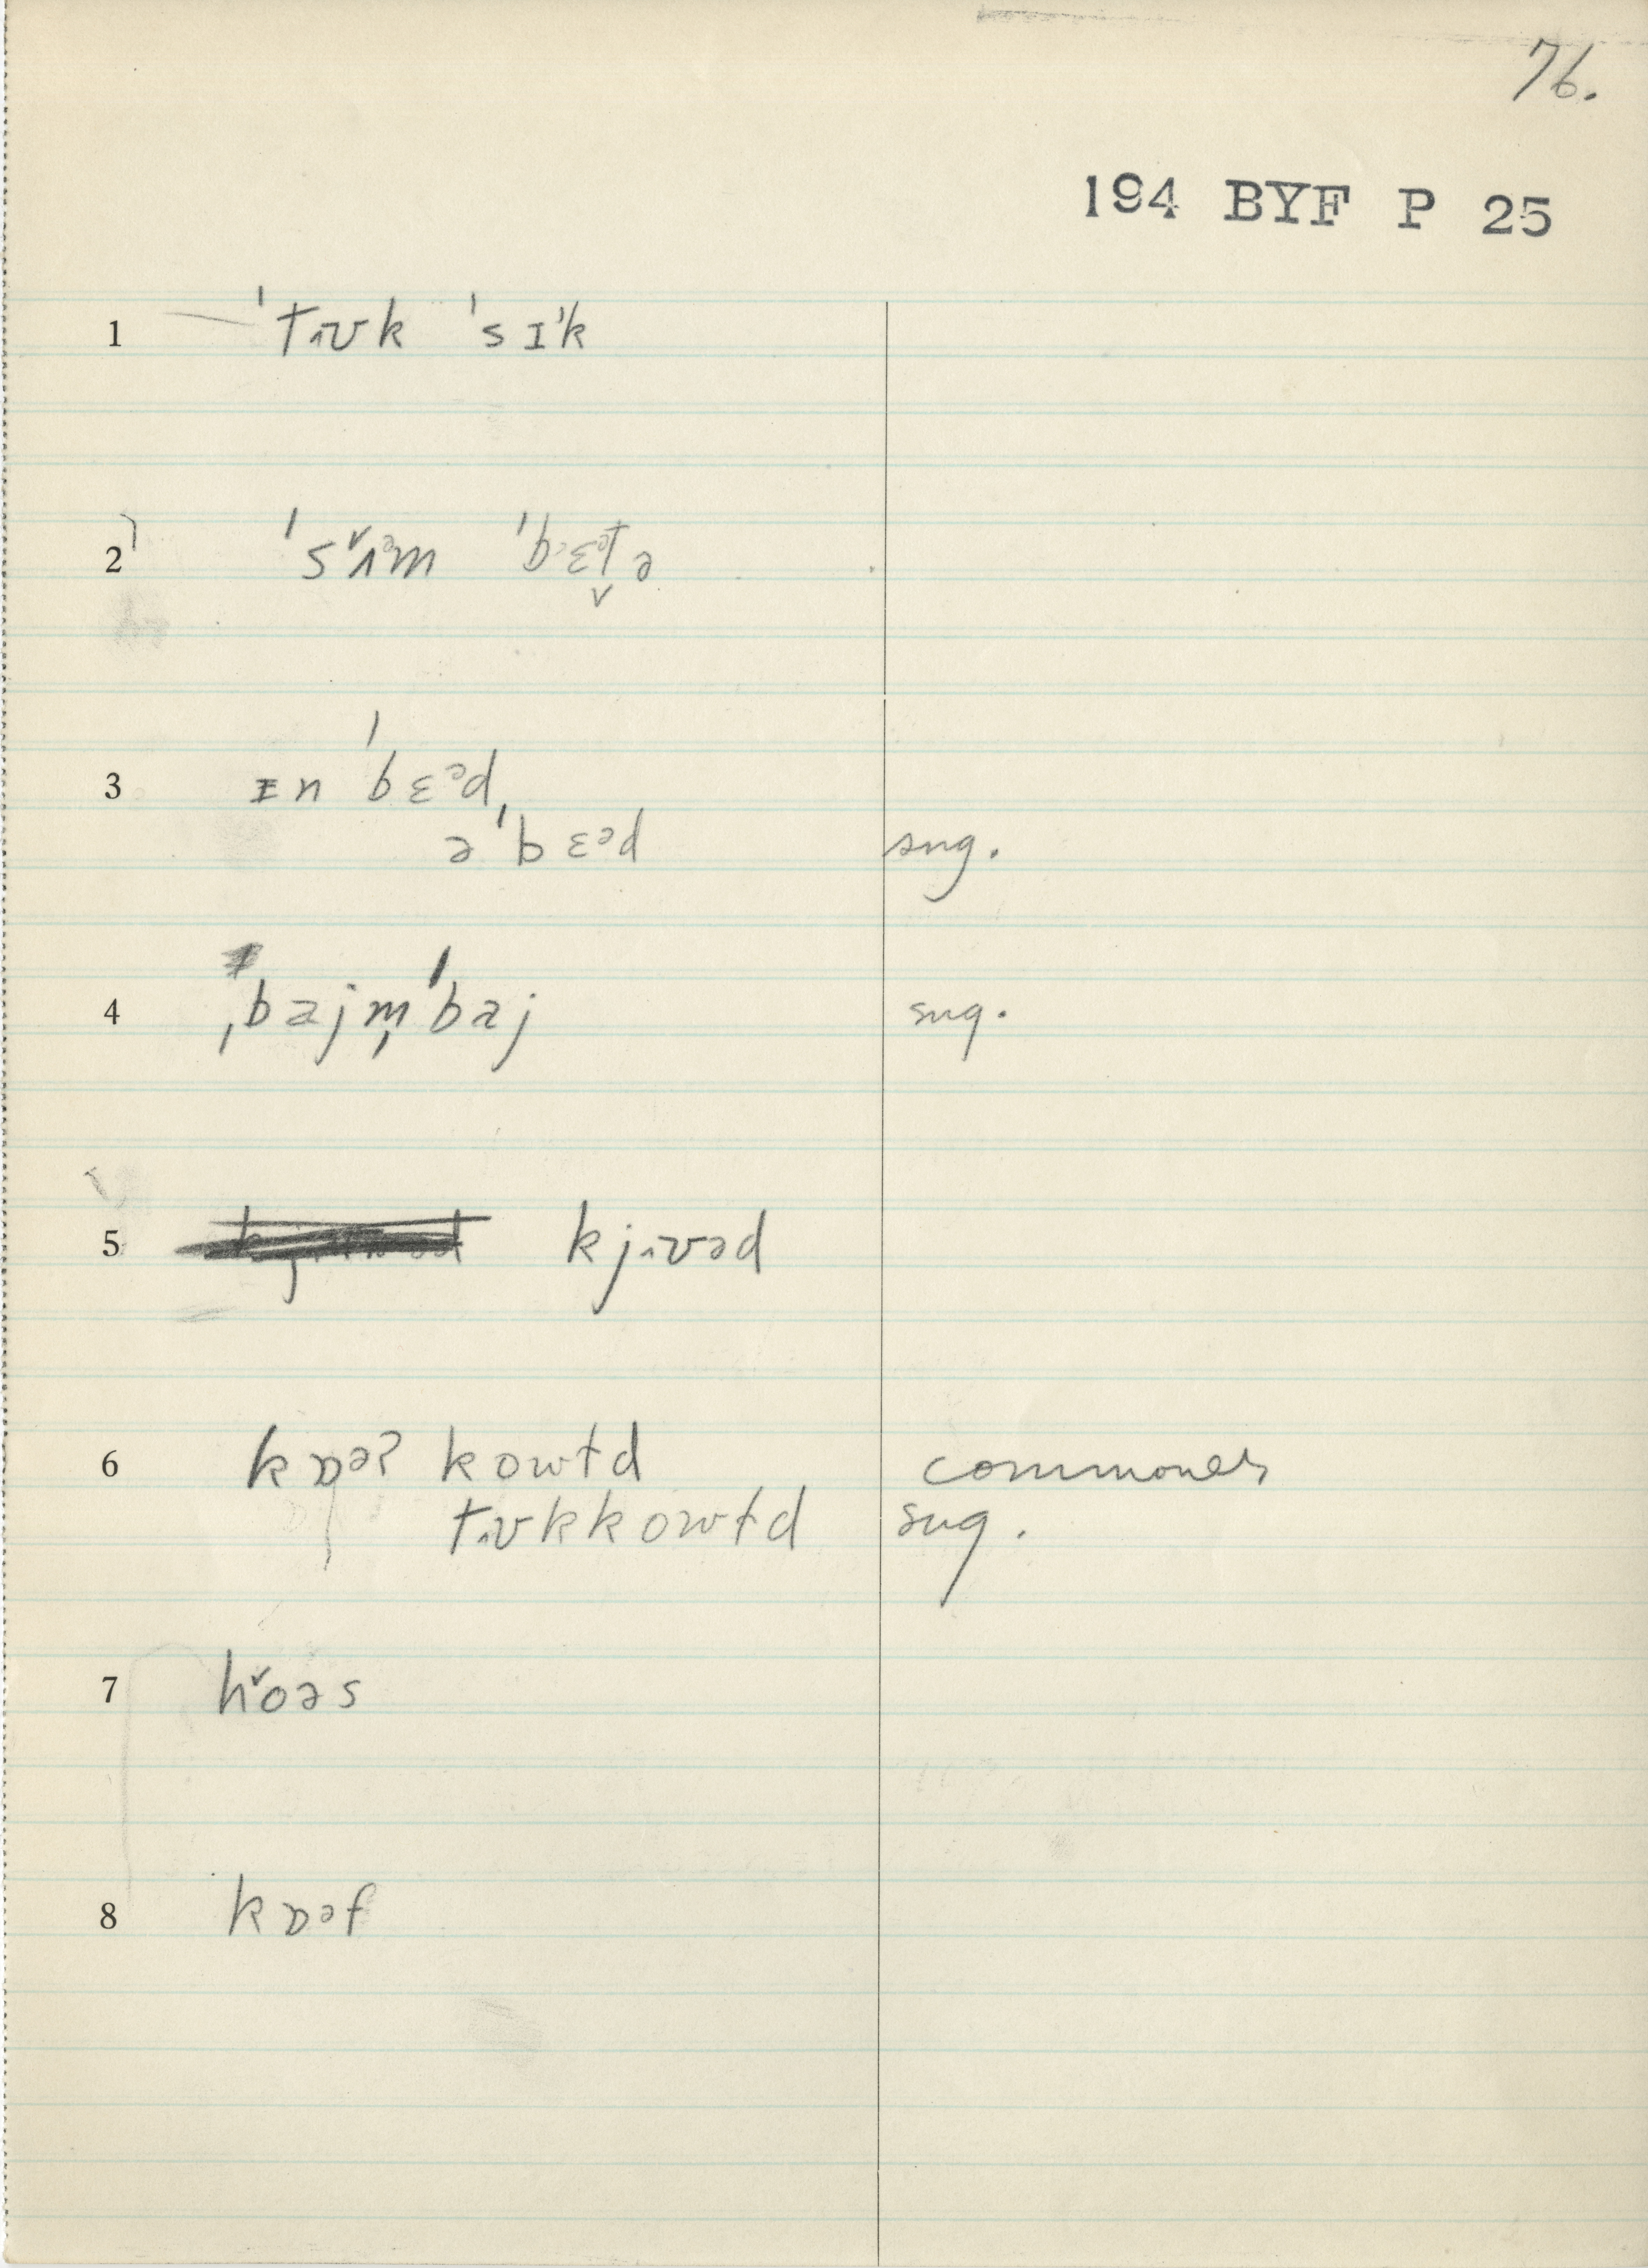 76.
194 BYF P 25
1 ˈtɪʊk ˈsɪˈk
2 ˈsʌ̌ᵊm ˈbɛᵊt̬ə
3 ɪn ˈbɛᵊd,
əˈbɛᵊd sug.
4 ˌbajm̩ˈbaj sug.
5 kjɪʊəd
6 kɒəʔ kowtd commoner
tɪʊkkowtd sug.
7 hǒəs
8 kɒəf